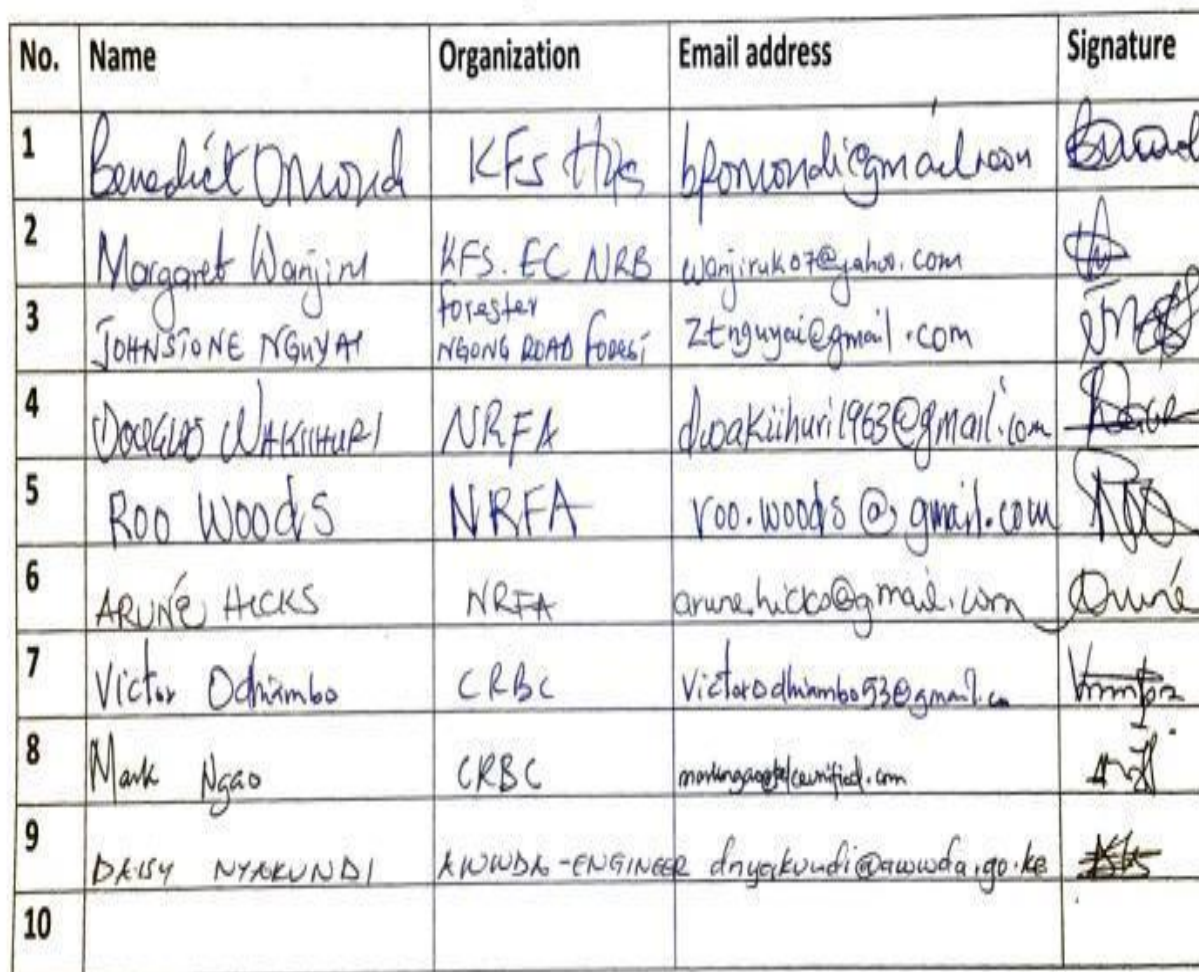 No. Name Organization Email address Signature
1 Benedict Omondi KFS HQs bfomondi@gmail.com
2 Margaret Wanjiru KFS. EC NRB wanjiruk07@yahoo.com
3 JOHNSTONE NGUYAI forester NGONG ROAD FOREST ztnguyai@gmail.com
4 DOUGLAS WAKIIHURI NRFA dwakiihuri1963@gmail.com
5 ROO WOODS NRFA roo.woods@gmail.com
6 ARUNÉ HICKS NRFA arune.hicks@gmail.com Aruné
7 Victor Odhiambo CRBC Victorodhiambo53@gmail.co
8 Mark Ngao CRBC
9 DAISY NYAKUNDI AWWDA-ENGINEER dnyakundi@awwda.go.ke
10